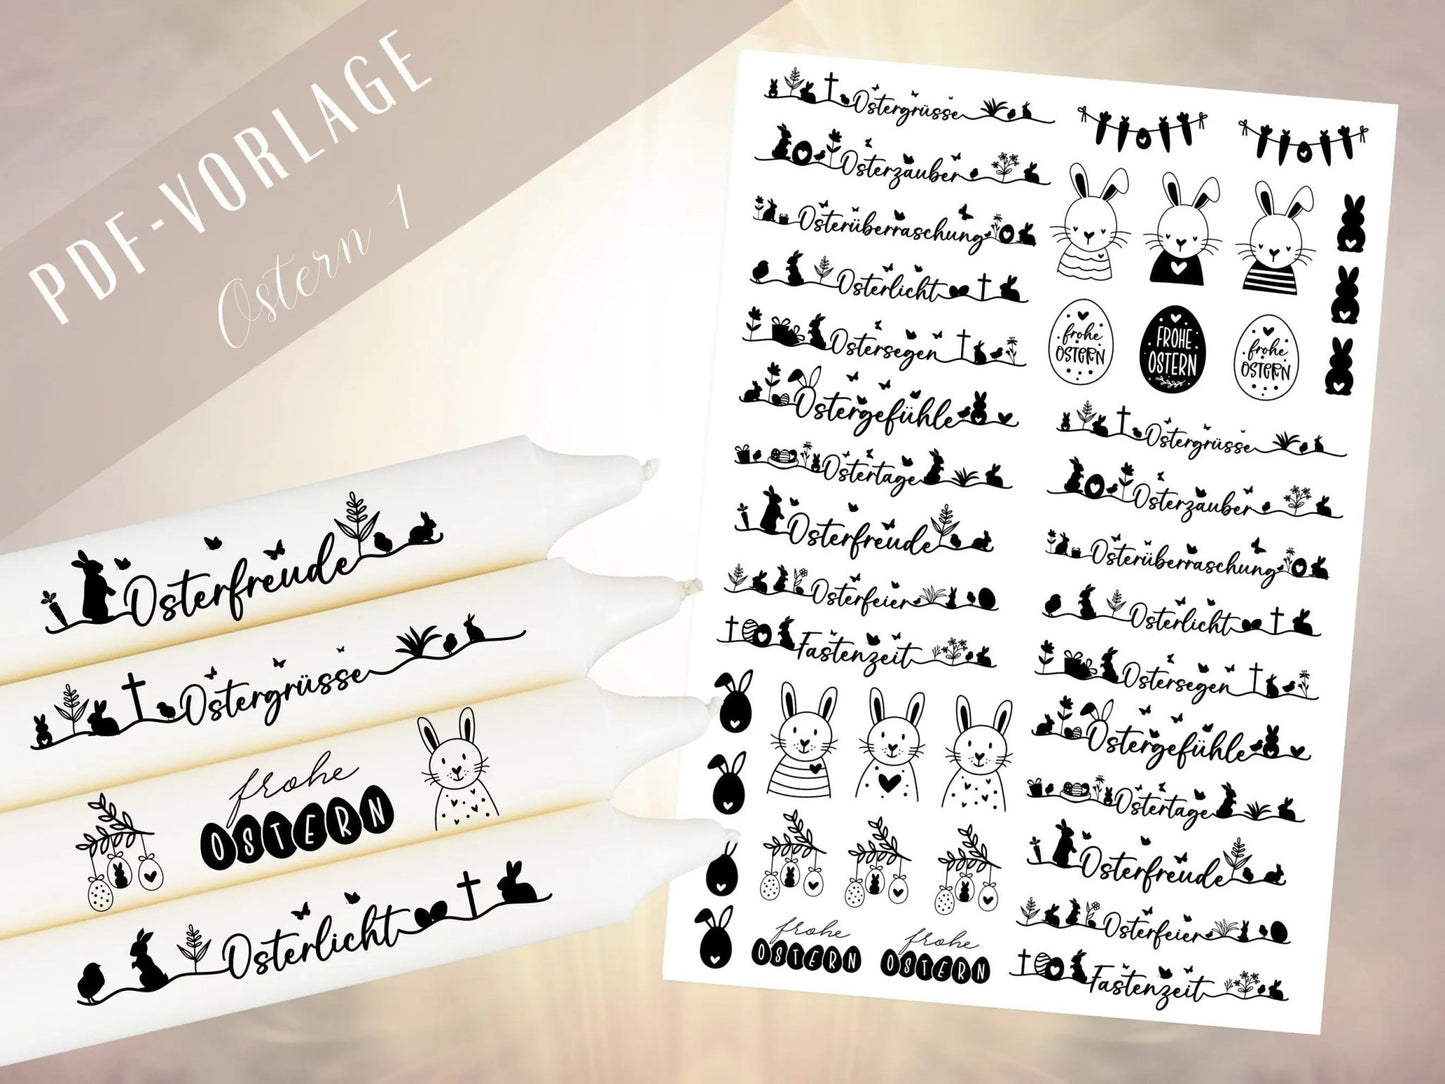 PDF-VORLAGE
Ostern 1
Osterfreude
Ostergrüsse
frohe
OSTERN
Osterlicht
Ostergrüsse
Osterzauber
Osterüberraschung
Osterlicht
Ostersegen
Ostergefühle
Ostertage
Osterfreude
Osterfeier
Fastenzeit
frohe
OSTERN
frohe
OSTERN
frohe
OSTERN
FROHE
OSTERN
frohe
OSTERN
Ostergrüsse
Osterzauber
Osterüberraschung
Osterlicht
Ostersegen
Ostergefühle
Ostertage
Osterfreude
Osterfeier
Fastenzeit